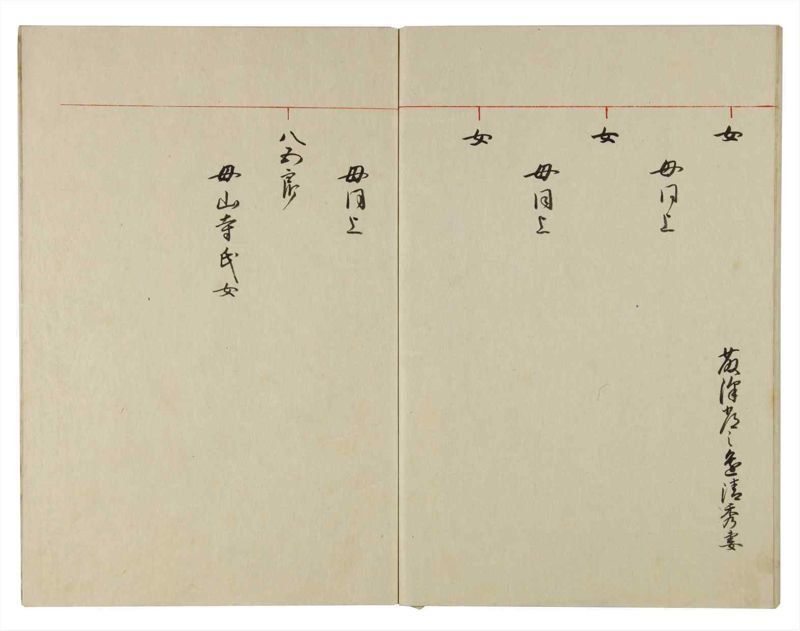 女
之進清秀妻
母同上
女
母同上
女
母同上
八五郎
母山寺氏女